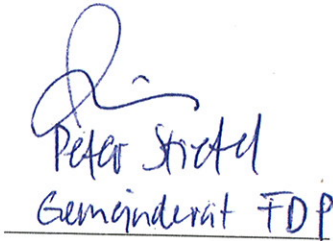 Peter Stiefel
Gemeinderat FDP